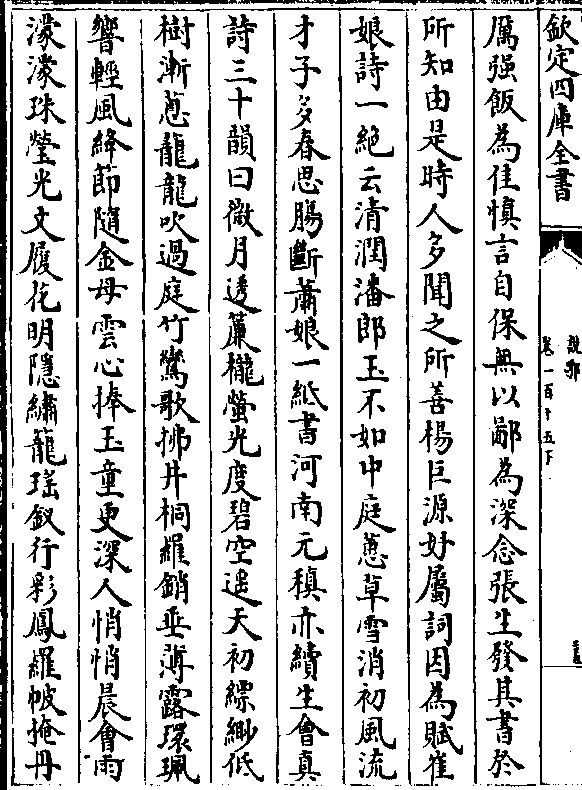 欽定四庫全書
說郛
卷一百十五下
厲强飯為佳慎言自保無以鄙為深念張生發其書於
所知由是時人多聞之所善楊巨源好屬詞因為賦崔
娘詩一絶云清潤潘郎玉不如中庭蕙草雪消初風流
才子多春思腸斷蕭娘一紙書河南元稹亦續生會真
詩三十韻曰微月透簾櫳螢光度碧空遥天初縹緲低
樹漸葱蘢龍吹過庭竹鸞歌拂井桐羅綃垂薄霧環珮
響輕風絳節隨金母雲心捧玉童更深人悄悄晨會雨
濛濛珠瑩光文履花明隱繡龍瑶釵行彩鳳羅帔掩丹